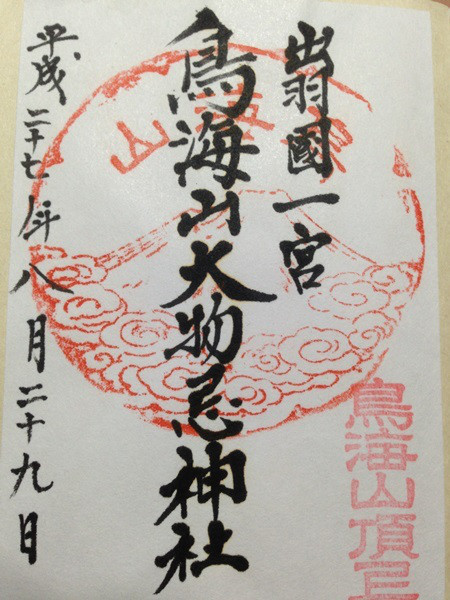 出羽國一宮
鳥海山大物忌神社
平成二十七年八月二十九日
鳥海山頂
山